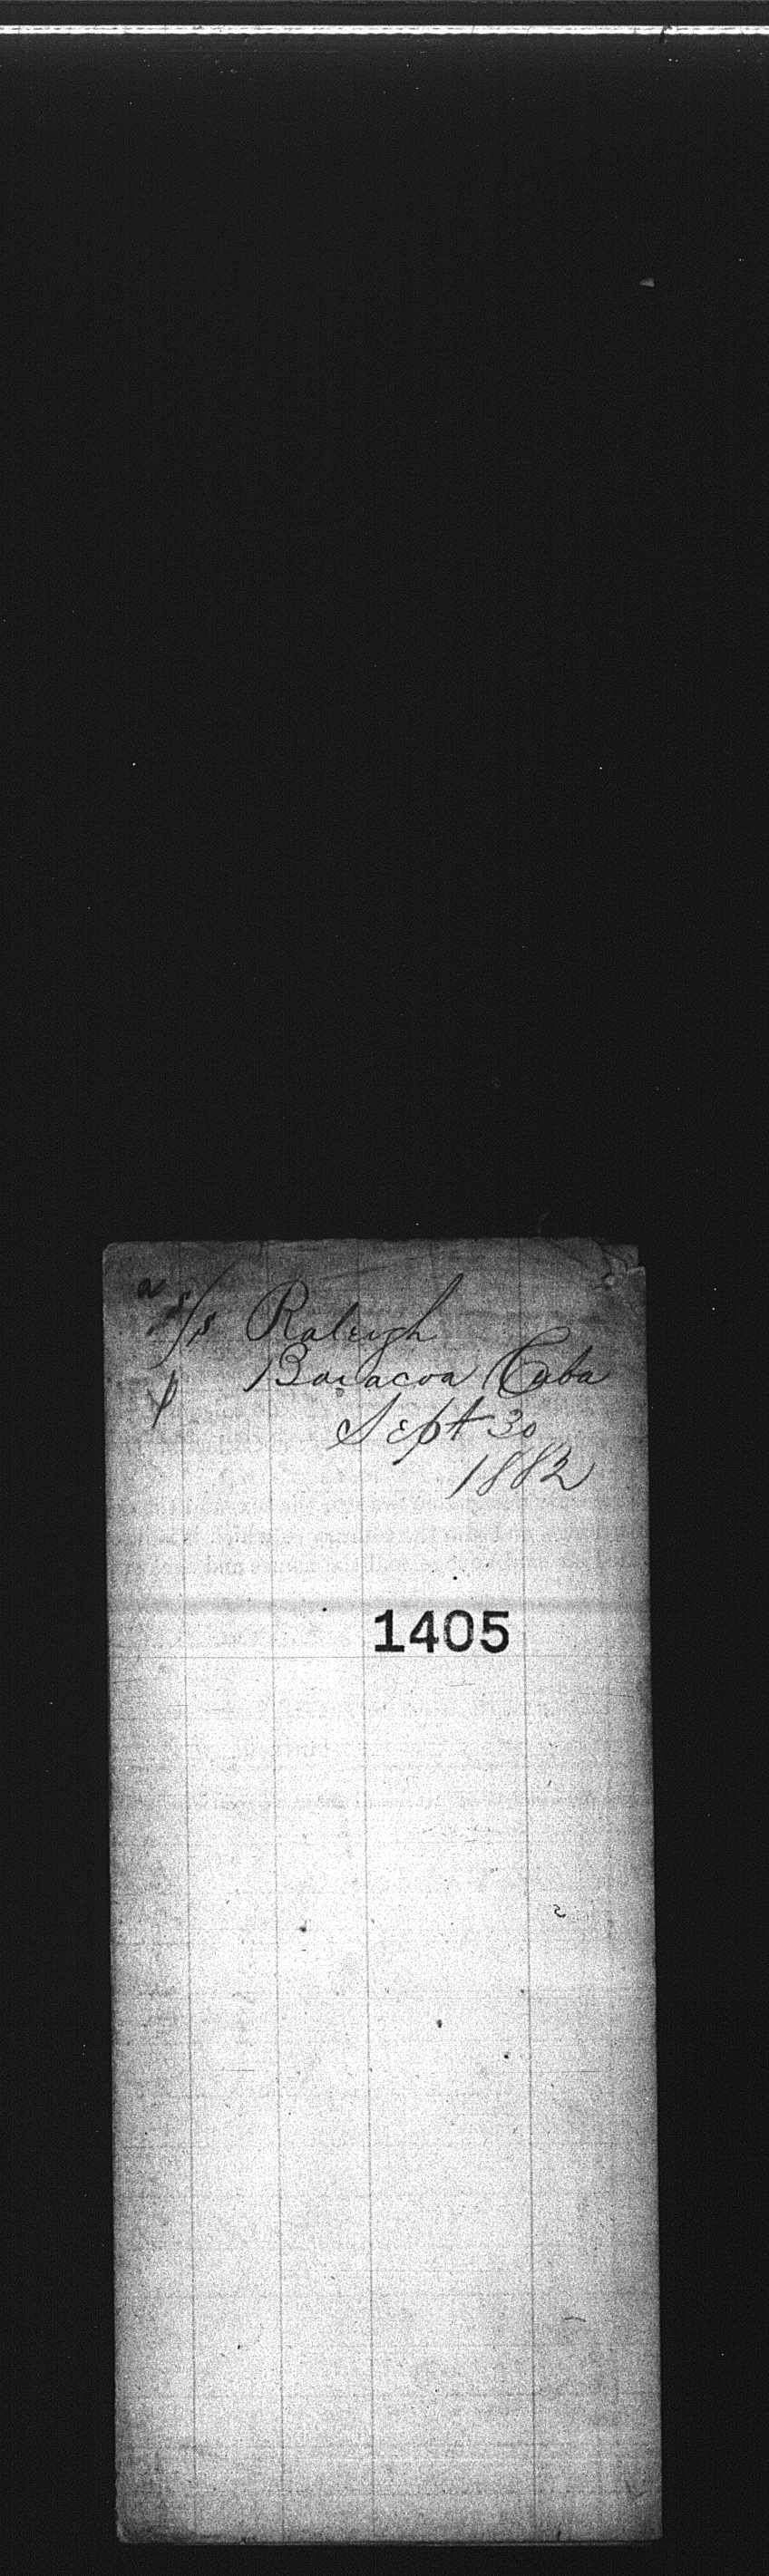 S/S Raleigh
Baracoa Cuba
Sept 30
1882
1405